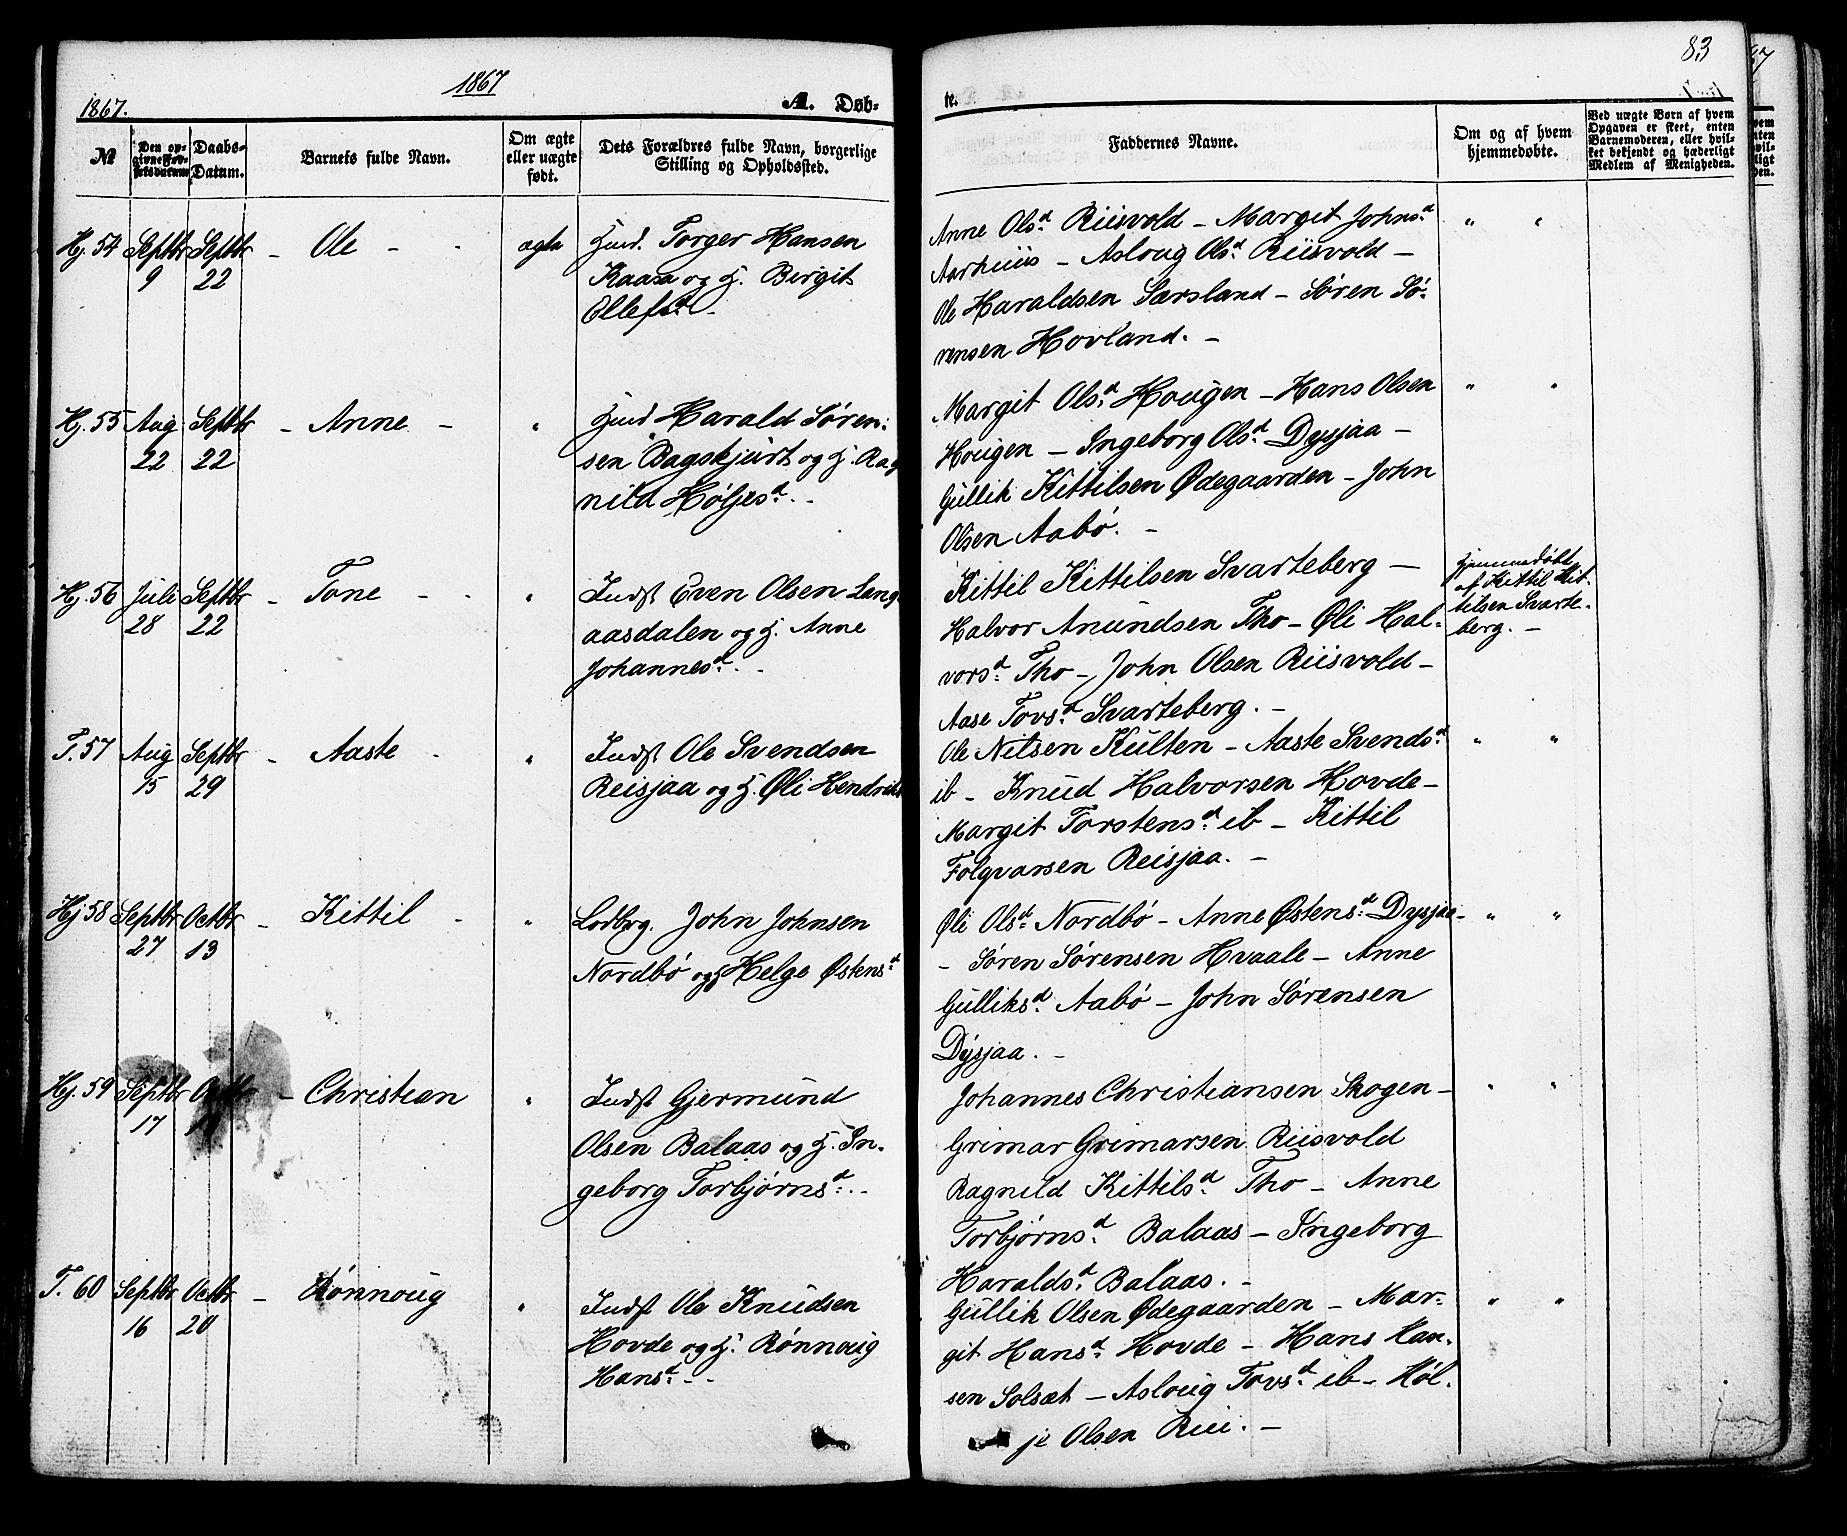 1867.
1867
A. Døb-
№
Den op-
givne Fød-
selsdatum
Daabs-
Datum.
Barnets fulde Navn.
Om ægte
eller uægte
født.
Dets Forældres fulde Navn, borgerlige
Stilling og Opholdssted.
Hj. 54 Septbr Septbr - Ole - - ægte
9 22
Gmd. Torger Hansen
Kaasa og H. Bergit
Ollefsd. -
Hj. 55 Aug Septbr - Anne - "
22 22
Gmd Harald Søren-
sen Bagskjurt og H. Rag
nild Høljesd. -
Hj. 56 Juli Septbr - Tone - - "
28 22
Indst Even Olsen Lang
aasdalen og H. Anne
Johannesd. -
T. 57 Aug Septbr - Aaste - "
15 29
Indst Ole Svendsen
Reisjaa og H. Øli Hendriks
Hj. 58 Septbr Octbr - Kittil - "
27 13
John Johnsen
Nordbø og H Helge Østensd
Hj. 59 Septbr Octbr - Christian "
17
Indst Gjermund
Olsen Balaas og H. In-
geborg Torbjørnsd. -
T. 60 Septbr Octbr - Rønnoug "
16 20
Indst Ole Knudsen
Hovde og H. Rønnoug
Hansd. -
83
te.
Faddernes Navne.
Om og af hvem
hjemmedøbte.
Ved uægte Børn af hvem
Opgaven er skeet, enten
Barnemoderen, eller hvil-
ket bekjendt og hæderligt
Medlem af Menigheden.
Anne Olsd. Riisvold - Margit Johnsd " "
Aarhuus - Asloug Olsd. Riisvold -
Ole Haraldsen Særsland - Søren Sø-
rensen Hovland. -
Margit Olsd. Hougen - Hans Olsen " "
Hougen - Ingeborg Olsd. Dysjaa -
Gullik Kittilsen Ødegaarden - John
Olsen Aabø. -
Kittil Kittilsen Svarteberg -
Halvor Anundsen Tho - Øli Hal-
vorsd. Tho - John Olsen Riisvold -
Aase Tovsd. Svarteberg. -
Hjemmedøbt
af Kittil Kit-
tilsen Svarte-
berg. -
Ole Nilsen Kulten - Aaste Svendsd. " "
ib - Knud Halvorsen Hovde -
Margit Torstensd. ib - Kittil
Folqvarsen Reisjaa. -
Øli Olsd. Nordbø - Anne Østensd. Dysjaa - " "
- Søren Sørensen Hvaale - Anne
Gulliksd. Aabø - John Sørensen
Dysjaa. -
Johannes Christiansen Skogen - " "
Grimar Grimarsen Riisvold
Ragnild Kittilsd. Tho - Anne
Torbjørnsd. Balaas - Ingeborg
Haraldsd. Balaas. -
Gullik Olsen Ødegaarden - Mar- " "
git Hansd. Hovde - Hans Han-
sen Solsæt - Asloug Tovsd. ib - Høl-
je Olsen Rui. -